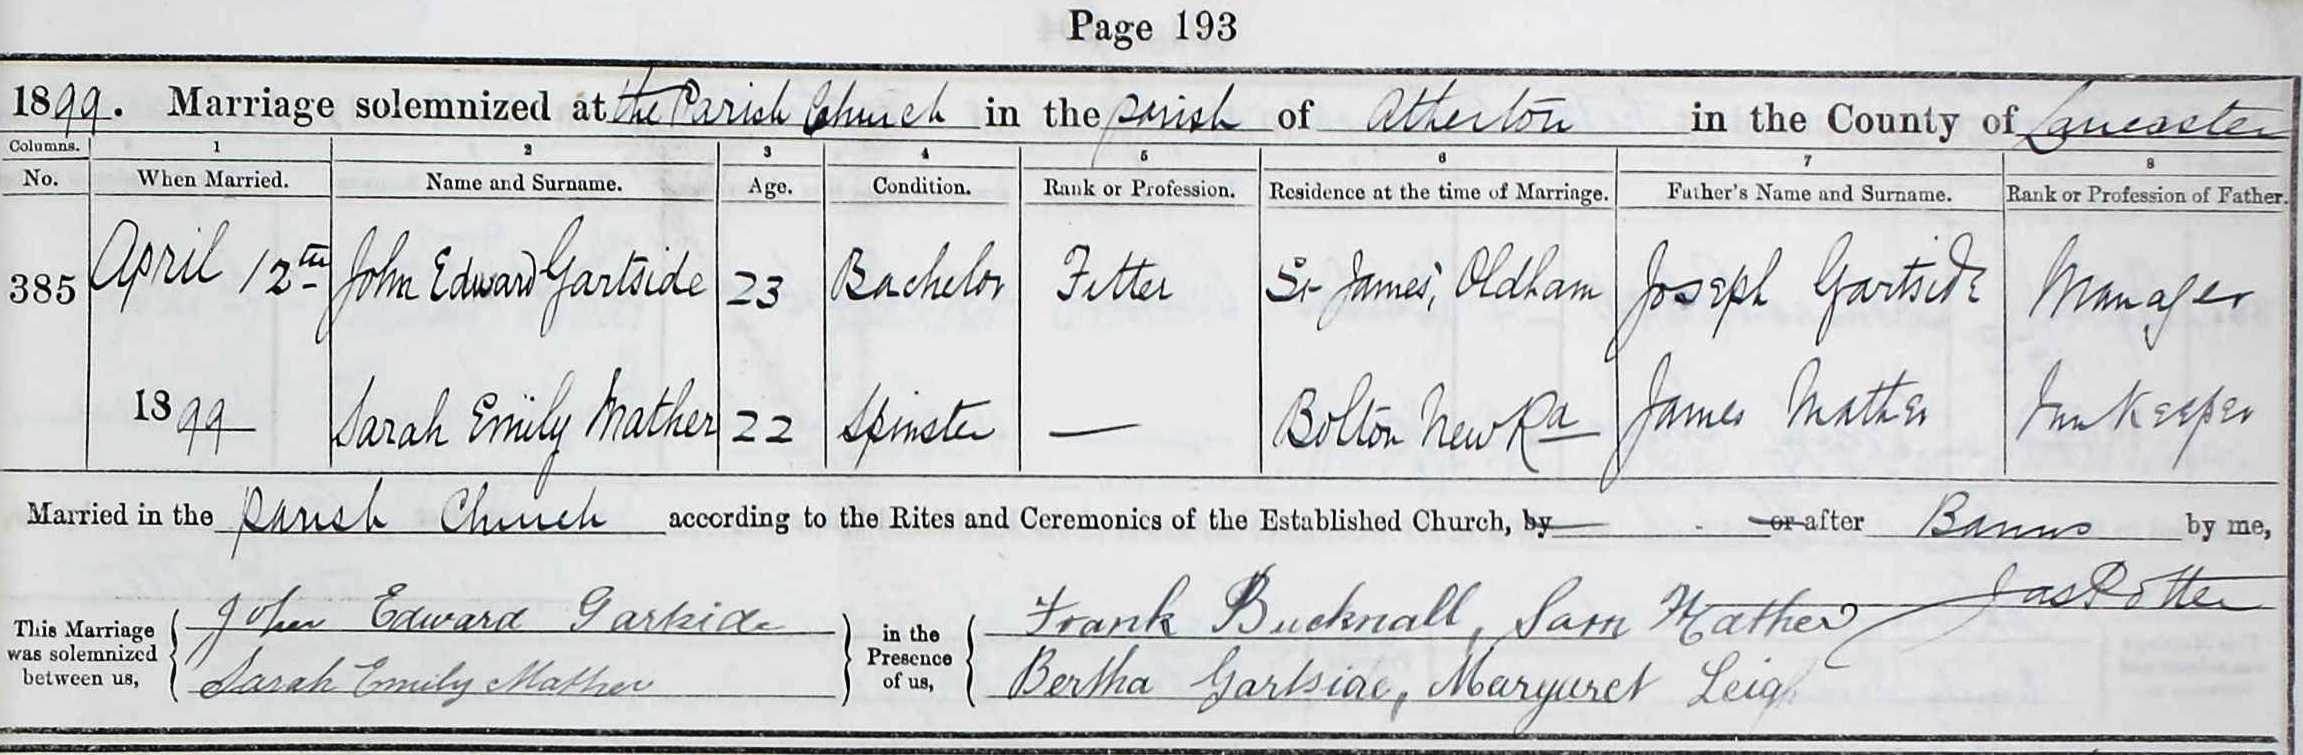 Page 193
1899. Marriage solemnized at the Parish Church in the parish of Atherton in the County of Lancaster
Columns. 1 2 3 4 5 6 7 8
No. When Married. Name and Surname. Age. Condition. Rank or Profession. Residence at the time of Marriage. Father's Name and Surname. Rank or Profession of Father.
385 April 12th John Edward Gartside 23 Bachelor Fitter St James', Oldham Joseph Gartside Manager
1899 Sarah Emily Mather 22 Spinster — Bolton New Rd James Mather Innkeeper
Married in the Parish Church according to the Rites and Ceremonies of the Established Church, by or after Banns by me,
Jas Potter
This Marriage was solemnized between us, John Edward Gartside in the Presence of us, Frank Bucknall, Sam Mather
Sarah Emily Mather Bertha Gartside, Margaret Leigh